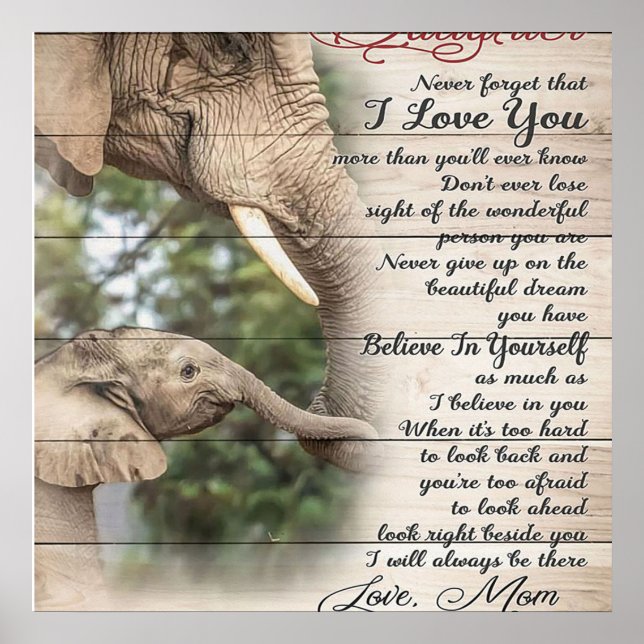 Daughter
Never forget that
I Love You
more than you'll ever know
Don't ever lose
sight of the wonderful
person you are
Never give up on the
beautiful dream
you have
Believe In Yourself
as much as
I believe in you
When it's too hard
to look back and
you're too afraid
to look ahead
look right beside you
I will always be there
Love, Mom